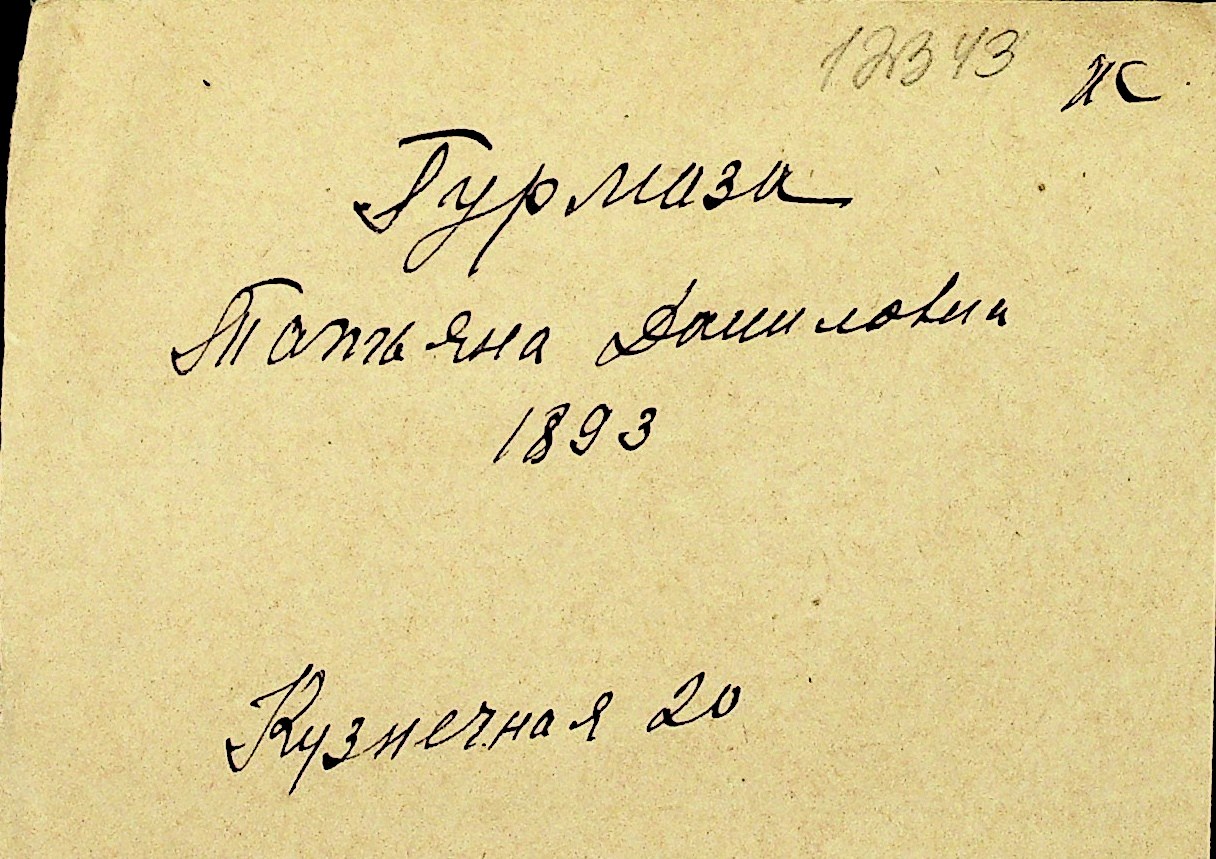 12343 Ж
Гурмаза
Татьяна Даниловна
1893
Кузнечная 20